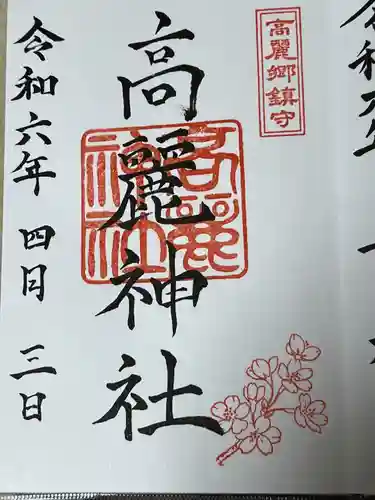 高麗郷鎮守
高麗神社
高麗神社
令和六年 四月 三日